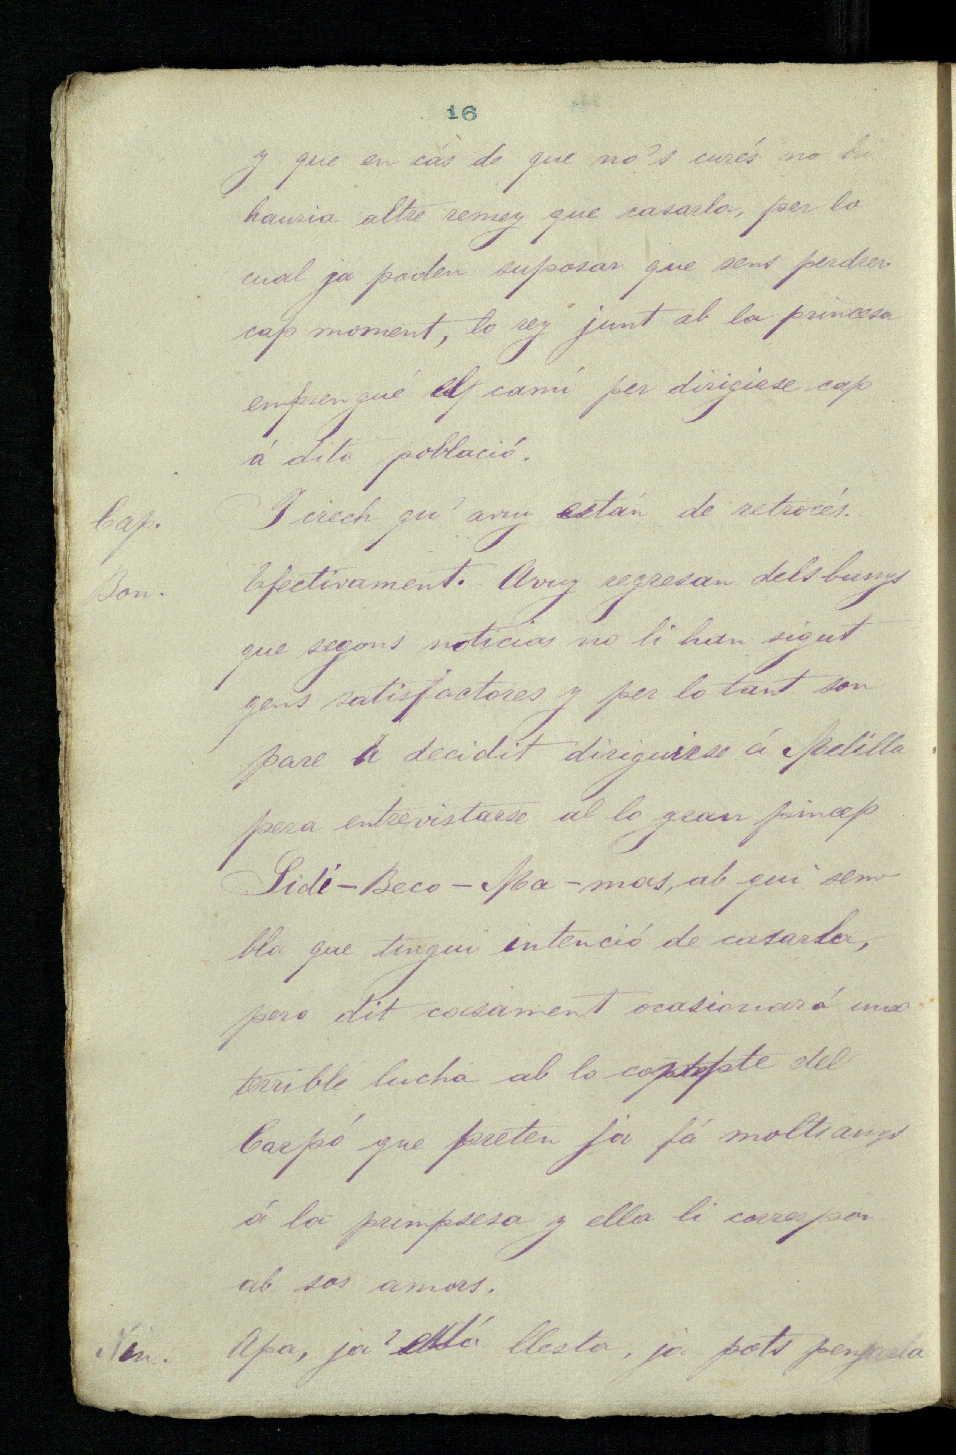 16
y que en cás de que no's curés no hi
hauria altre remey que casarla, per lo
cual ja poden suposar que sens perdrer
cap moment, lo rey junt ab la princesa
emprengué el camí per dirigirse cap
á dita població.
Cap. Y crech qu'avuy están de retrocés.
Bon. Efectivament. Avuy regresan dels bunys
que segons noticias no li han sigut
gens satisfactores y per lo tant son
pare h decidit diriguirse á Melilla
pera entrevistarse ab lo gran princep
Sidi-Beco-Ma-mas, ab qui sem-
bla que tingui intenció de casarla,
pero dit casament ocasionará una
terrible lucha ab lo compte del
Carpó que preten ja fá molts anys
á la primpsesa y ella li correspon
ab sos amors.
Nin. Apa, ja está llesta, ja pots penjarla